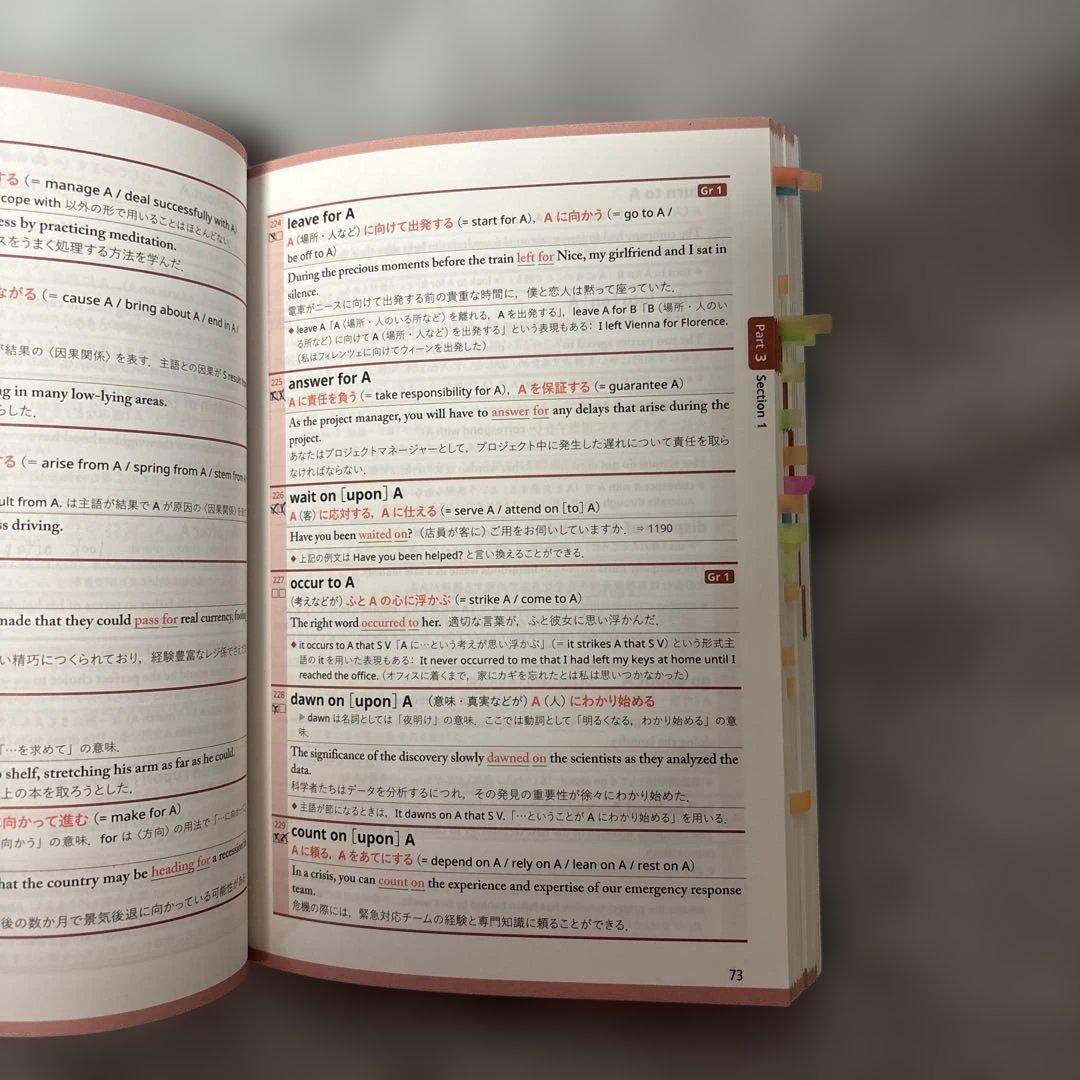 する (= manage A / deal successfully with A)
cope with 以外の形で用いることはほとんどない.
ess by practicing meditation.
スをうまく処理する方法を学んだ.
ながる (= cause A / bring about A / end in A /
が結果の〈因果関係〉を表す. 主語との因果が S result
ng in many low-lying areas.
らした.
する (= arise from A / spring from A / stem from
ult from A. は主語が結果で A が原因の〈因果関係〉を
ss driving.
made that they could pass for real currency,
い精巧につくられており, 経験豊富なレジ係でさえ
「…を求めて」の意味.
p shelf, stretching his arm as far as he could.
上の本を取ろうとした.
に向かって進む (= make for A)
向かう」の意味. for は〈方向〉の用法で「…に向か
hat the country may be heading for a recession
後の数か月で景気後退に向かっている可能性がある
Gr 1
224 leave for A
A (場所・人など) に向けて出発する (= start for A), A に向かう (= go to A /
be off to A)
During the precious moments before the train left for Nice, my girlfriend and I sat in
silence.
電車がニースに向けて出発する前の貴重な時間に, 僕と恋人は黙って座っていた.
◆ leave A「A (場所・人のいる所など) を離れる, A を出発する」, leave A for B「B (場所・人のい
る所など) に向けて A (場所・人など) を出発する」という表現もある: I left Vienna for Florence.
(私はフィレンツェに向けてウィーンを出発した)
225 answer for A
A に責任を負う (= take responsibility for A), A を保証する (= guarantee A)
As the project manager, you will have to answer for any delays that arise during the
project.
あなたはプロジェクトマネージャーとして, プロジェクト中に発生した遅れについて責任を取ら
なければならない.
226 wait on [upon] A
A (客) に応対する, A に仕える (= serve A / attend on [to] A)
Have you been waited on? (店員が客に) ご用をお伺いしていますか. ⇒ 1190
◆ 上記の例文は Have you been helped? と言い換えることができる.
227 occur to A
Gr 1
(考えなどが) ふと A の心に浮かぶ (= strike A / come to A)
The right word occurred to her. 適切な言葉が, ふと彼女に思い浮かんだ.
◆ it occurs to A that S V「A に…という考えが思い浮かぶ」(= it strikes A that S V) という形式主
語の it を用いた表現もある: It never occurred to me that I had left my keys at home until I
reached the office. (オフィスに着くまで, 家にカギを忘れたとは私は思いつかなかった)
228 dawn on [upon] A (意味・真実などが) A (人) にわかり始める
▶ dawn は名詞としては「夜明け」の意味. ここでは動詞として「明るくなる, わかり始める」の意
味.
The significance of the discovery slowly dawned on the scientists as they analyzed the
data.
科学者たちはデータを分析するにつれ, その発見の重要性が徐々にわかり始めた.
◆ 主語が節になるときは, It dawns on A that S V.「…ということが A にわかり始める」を用いる.
229 count on [upon] A
A に頼る, A をあてにする (= depend on A / rely on A / lean on A / rest on A)
In a crisis, you can count on the experience and expertise of our emergency response
team.
危機の際には, 緊急対応チームの経験と専門知識に頼ることができる.
73
Part 3 Section 1